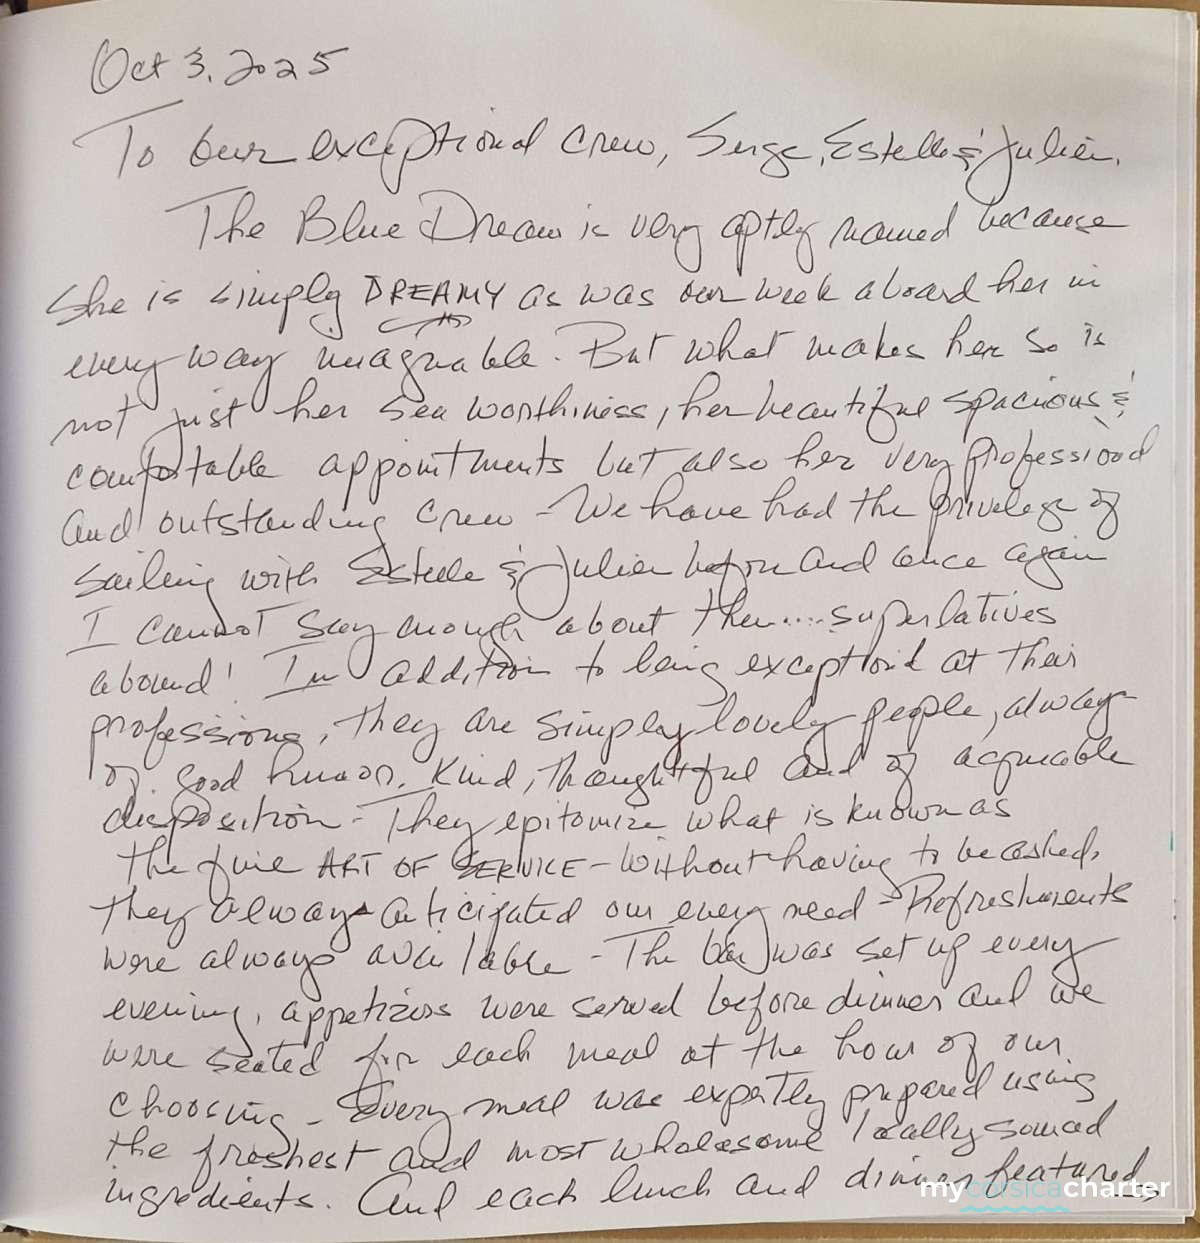 Oct 3, 2025
To our exceptional crew, Serge, Estelle & Julien,
The Blue Dream is very aptly named because
she is simply DREAMY as was our week aboard her in
every way imaginable. But what makes her so is
not just her sea worthiness, her beautiful spacious &
comfortable appointments but also her very professional
and outstanding crew - We have had the privelege of
sailing with Estelle & Julien before and once again
I cannot say enough about them.... superlatives
abound! In addition to being exceptional at their
professions, they are simply lovely people, always
of good humor, kind, thoughtful and of agreeable
disposition - They epitomize what is known as
the fine ART OF SERVICE - Without having to be asked,
they always anticipated our every need - Refreshments
were always available - The bar was set up every
evening, appetizers were served before dinner and we
were seated for each meal at the hour of our
choosing - Every meal was expertly prepared using
the freshest and most wholesome locally sourced
ingredients. And each lunch and dinner featured
mycorsicacharter